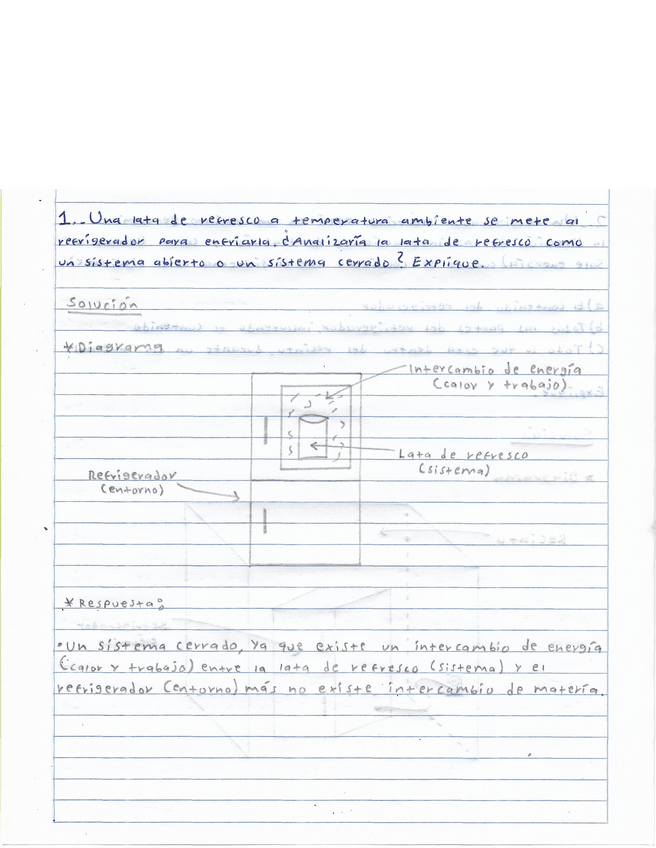 1.. Una lata de refresco a temperatura ambiente se mete al
refrigerador para enfriarla. ¿Analizaría la lata de refresco como
un sistema abierto o un sistema cerrado? Explique.
Solución
* Diagrama
Intercambio de energía
(calor y trabajo)
Lata de refresco
(sistema)
Refrigerador
(entorno)
* Respuesta:
• Un sistema cerrado, ya que existe un intercambio de energía
(calor y trabajo) entre la lata de refresco (sistema) y el
refrigerador (entorno) más no existe intercambio de matería.